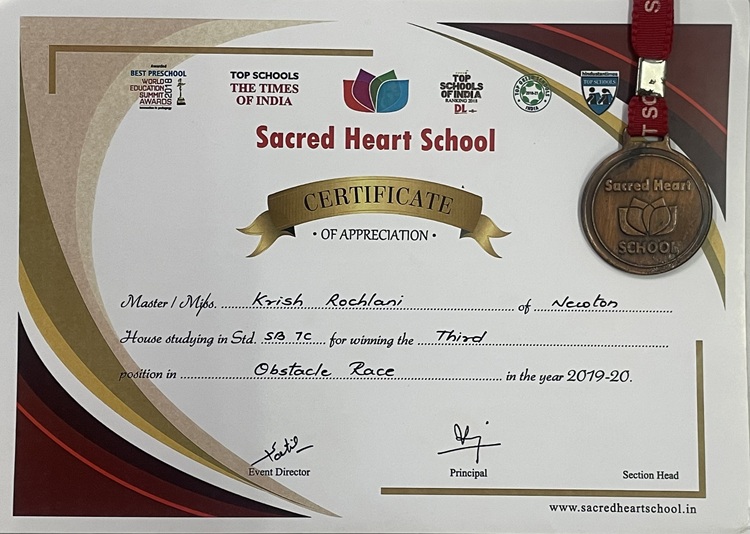 Awarded
BEST PRESCHOOL
WORLD
EDUCATION
SUMMIT
AWARDS
2018
TOP SCHOOLS
THE TIMES
OF INDIA
TOP
SCHOOLS
OF INDIA
RANKING 2018
DL
TOP SCHOOLS
INDIA
Sacred Heart School
CERTIFICATE
• OF APPRECIATION •
Master / Miss. Krish Rochlani of Newton
House studying in Std. SB 7C for winning the Third
position in Obstacle Race in the year 2019-20.
Event Director
Principal
Section Head
www.sacredheartschool.in
S
T SC
Sacred Heart
SCHOOL